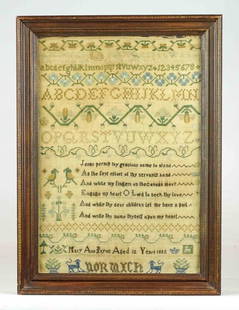 abcdefghiklmnopqrstuvwxyz 12345678
ABCDEFGHIJKLMN
OPQRSTUVWXYZ
Jesus permit thy gracious name to stand
As the first effort of thy servants hand
And while my fingers on the canvas move
Engage my heart O Lord to seek thy love
And while thy dear children let me have a part
And write thy name thyself upon my heart
Mary Ann Aged Years
NORWICH